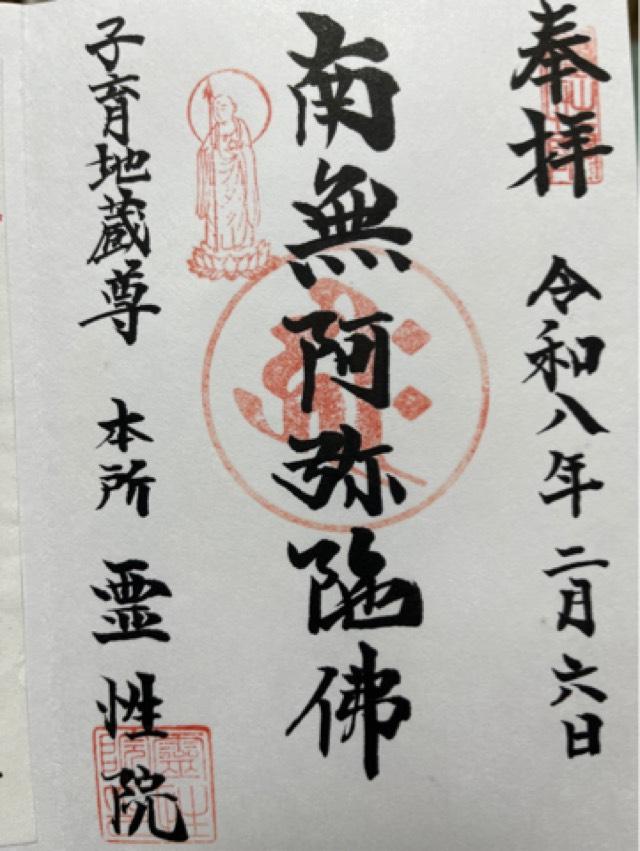 奉拝 令和八年二月六日
南無阿弥陀佛
子育地蔵尊 本所 霊性院